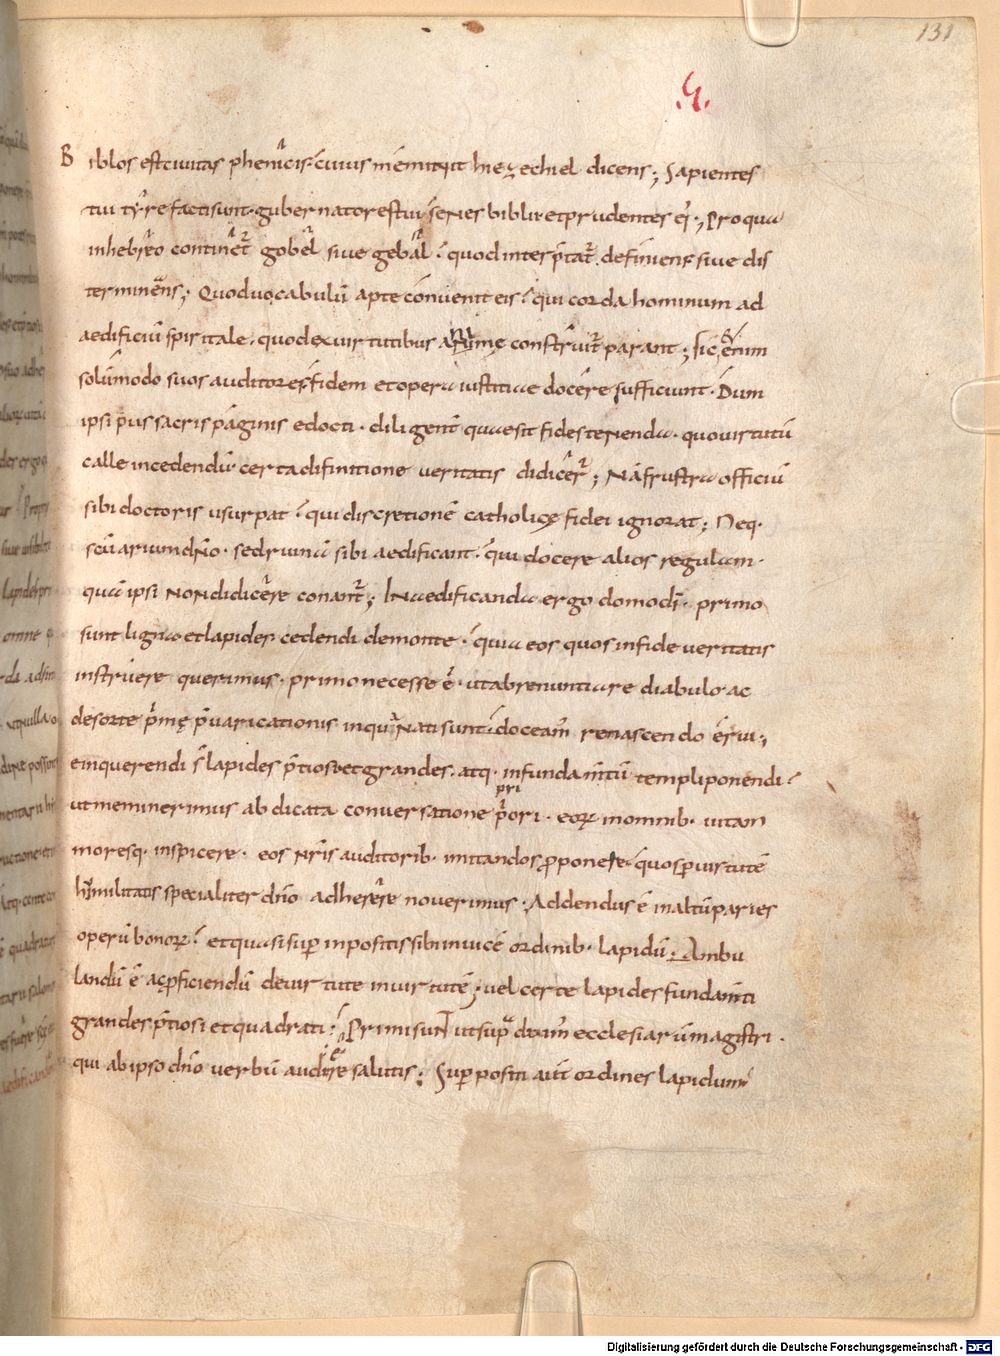 131
.G.
Biblos est civitas phenicis. cuius meminit hiezechiel dicens; Sapientes
tui tyre facti sunt. gubernatores tui senes biblii et prudentes ei; Pro qua
in hebreo continet gobel sive gebal. quod interptat. definiens sive dis
terminans; Quod vocabulū apte convenit eis. qui corda hominum ad
aedificiū spiritale. quod ex virtutibus animę construit parant; sic etum
solūmodo suos auditores. fidem et opera iustitiae docere sufficiunt. Dum
ipsi prius sacris paginis edocti. diligent quae sit fides tenenda. quo virtutū
calle incedendū. certa difinitione veritatis didicer; Nā frustra officiū
sibi doctoris usurpat. qui discretionē catholicę fidei ignorat; Neq.
scūarium dno. sed ruinā sibi aedificant. qui docere alios regulam.
quā ipsi non didicere conant; In aedificanda ergo domo di. primo
sunt ligna et lapides cedendi de monte. quia eos quos in fide veritatis
instruere querimus. primo necesse ē. ut abrenuntiare diabulo ac
de sorte primę pvaricationis in qua nati sunt. doceam renascendo erui;
einquerendi s lapides ptiosi et grandes. atq. in fundamtū templi ponendi.
ut meminerimus abdicata conversatione priori. eorꝝ in omnib. vitam
moresq. inspicere. eos nris auditorib. imitandos proponere. quos p virtutē
humilitatis specialiter dno adherere noverimus. Addendus ē in altū paries
operū bonorꝝ. et quasi sup inpositis sibi invicē ordinib. lapidū. Ambu
landū ē ac pficiendū de virtute in virtutē; vel certe lapides fundamti
grandes ptiosi et quadrati. Primi sunt ut supra docuim ecclesiarū magistri.
qui ab ipso dno verbū audire salutis; Suppositi aut ordines lapidum
Digitalisierung gefördert durch die Deutsche Forschungsgemeinschaft - DFG